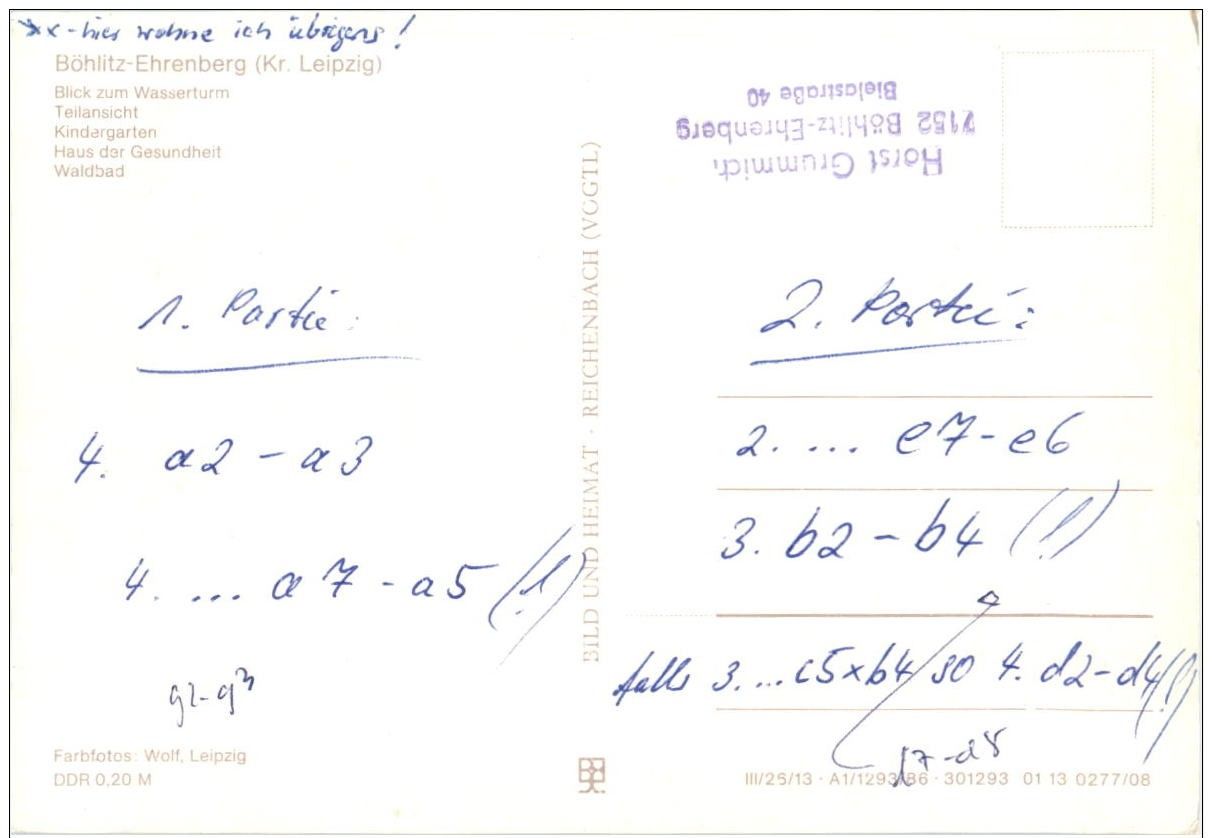 x - hier wohne ich übrigens!
Böhlitz-Ehrenberg (Kr. Leipzig)
Blick zum Wasserturm
Teilansicht
Kindergarten
Haus der Gesundheit
Waldbad
Horst Grummich,
7152 Böhlitz-Ehrenberg
Bielastraße 40
1. Partie:
4. a2 - a3
4. ... a7 - a5 (!)
g2-g3
Farbfotos: Wolf, Leipzig
DDR 0,20 M
BILD UND HEIMAT · REICHENBACH (VOGTL)
2. Partie:
2. ... e7 - e6
3. b2 - b4 (!)
falls 3. ... c5xb4 so 4. d2-d4 (!)
III/26/13 · A1/1293/86 · 301293 01 13 0277/08